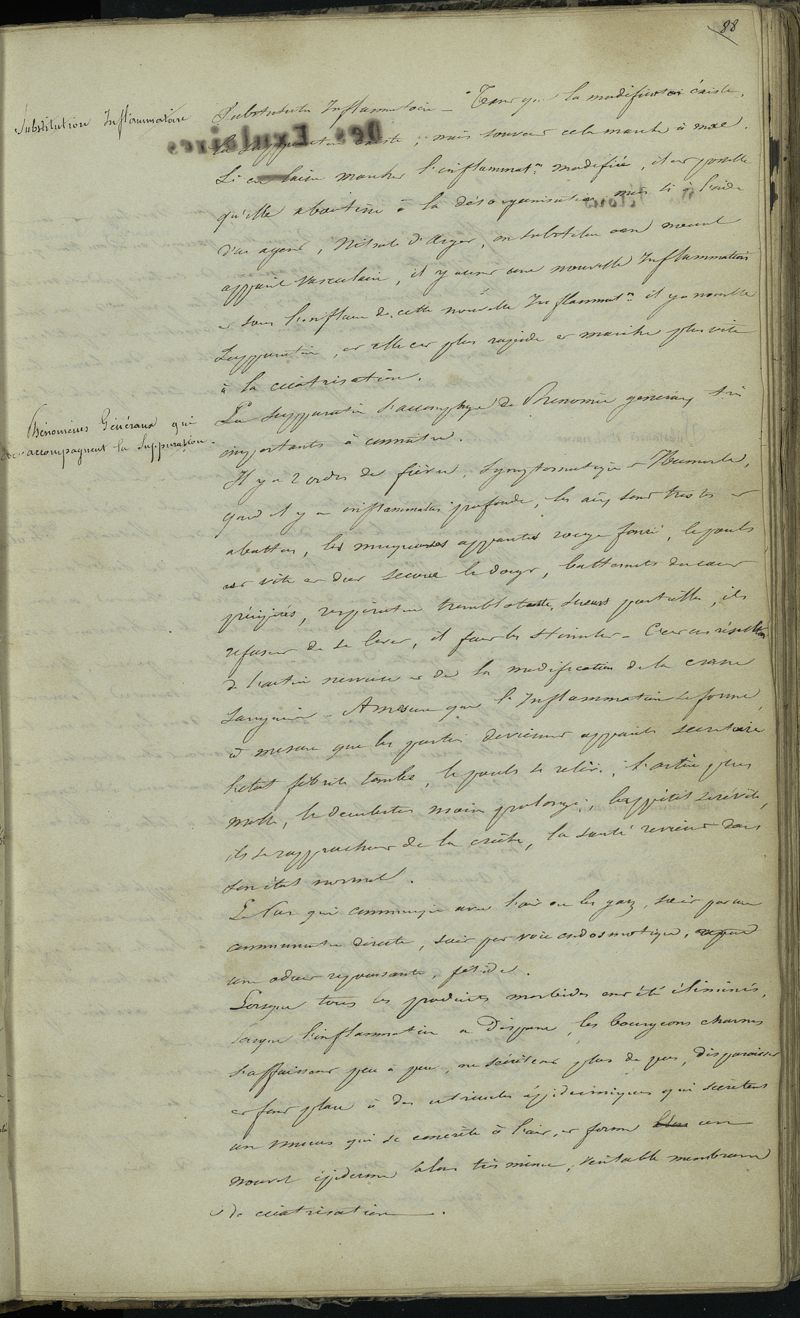 88
Substitution Inflammatoire
Substitution Inflammatoire - Tant que la modification existe,
la suppuration existe, mais souvent cela marche à mal.
Si on laisse marcher l'inflammatn modifiée, il est possible
qu'elle aboutisse à la désorganisation mais si à l'aide
d'un agent, Nitrate d'Argent, on substitue un nouvel
appareil vasculaire, il y aura une nouvelle Inflammation
et sous l'influence de cette nouvelle Inflammatn il y a nouvelle
Suppuration, et elle est plus rapide et marche plus vite
à la cicatrisation.
Phénomènes Généraux qui
accompagnent la Suppuration.
La Suppuration s'accompagne de Phénomènes généraux très
importants à connaître.
Il y a 2 ordres de fièvre, Symptomatique et
quand il y a inflammation profonde, les sont tristes et
abattus, les muqueuses apparentes rouge foncé, le pouls
est vite et dur sous le doigt, battements du cœur
respiration tremblotante, sueurs partielles, ils
refusent de se lever, il faut les stimuler - C'est un résultat
de l'action nerveuse et de la modification de la crase
sanguine - A mesure que l'Inflammation se forme,
à mesure que les parties deviennent appareils sécrétoire
l'état fébrile tombe, le pouls se relève, l'artère plus
molle, le decubitus moins prolongé, l'appétit se révèle,
ils se rapprochent de la crèche, la santé revient dans
son état normal.
Le Pus qui communique avec l'air ou les gaz, soit par une
communication directe, soit par voie endosmotique,
une odeur repoussante, fétide.
Lorsque tous les produits morbides ont été éliminés,
lorsque l'inflammation a disparu, les bourgeons charnus
s'affaissent peu à peu, ne sécrètent plus de pus, disparaissent
et font place à des utricules épidermiques qui secrètent
un mucus qui se concrète à l'air, et forme un
nouvel épiderme alors très mince, véritable membrane
de cicatrisation.